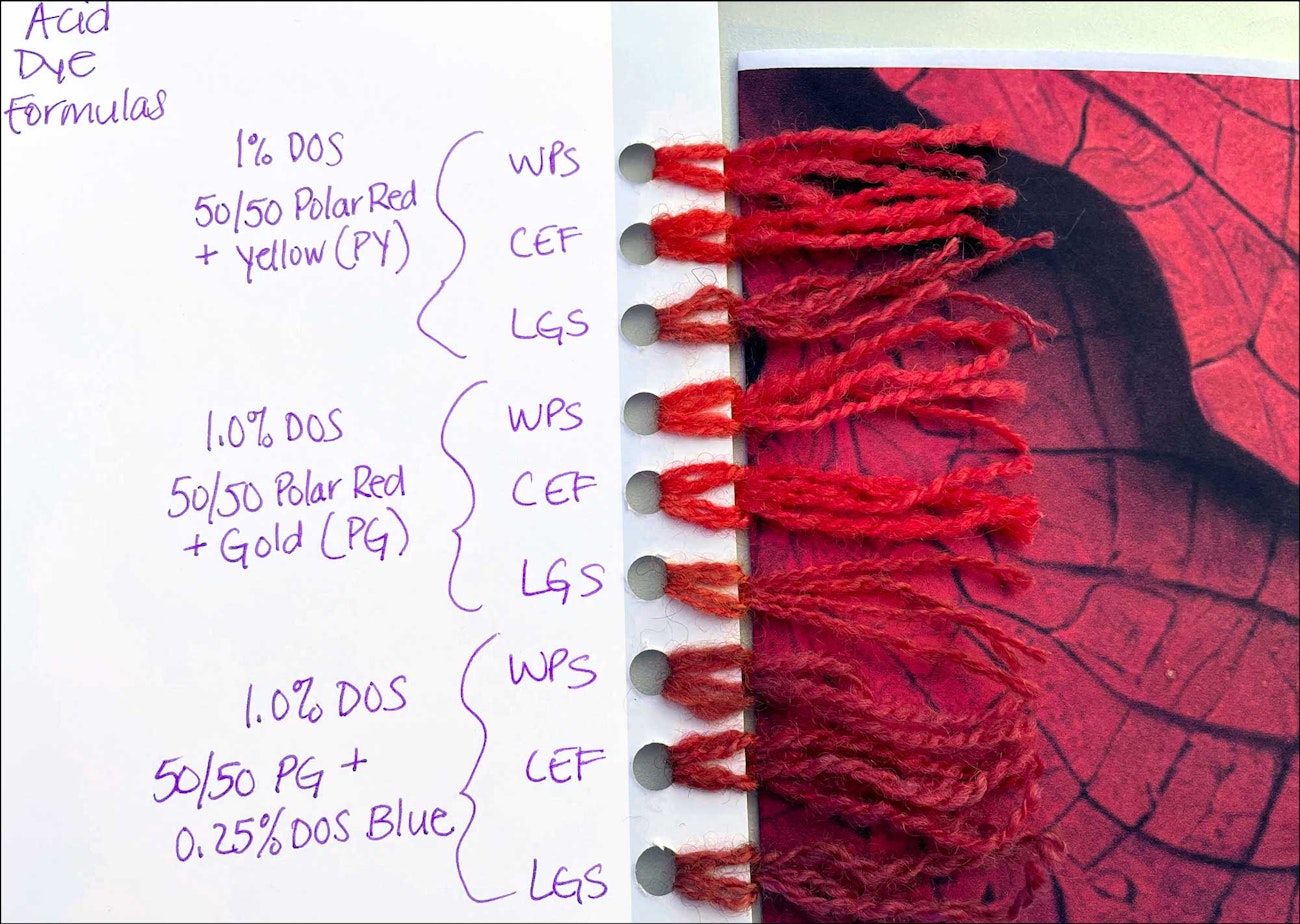 Acid
Dye
Formulas
1% DOS
50/50 Polar Red
+ Yellow (PY)
WPS
CEF
LGS
1.0% DOS
50/50 Polar Red
+ Gold (PG)
WPS
CEF
LGS
1.0% DOS
50/50 PG +
0.25% DOS Blue
WPS
CEF
LGS